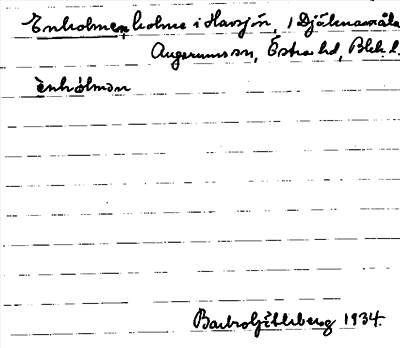 Enholmen, holme i Havsjön, 1 Djäknamåla
Augerums sn, Östra hd, Blek. l.
ènhólmən
Barbro Ljitterberg 1934.